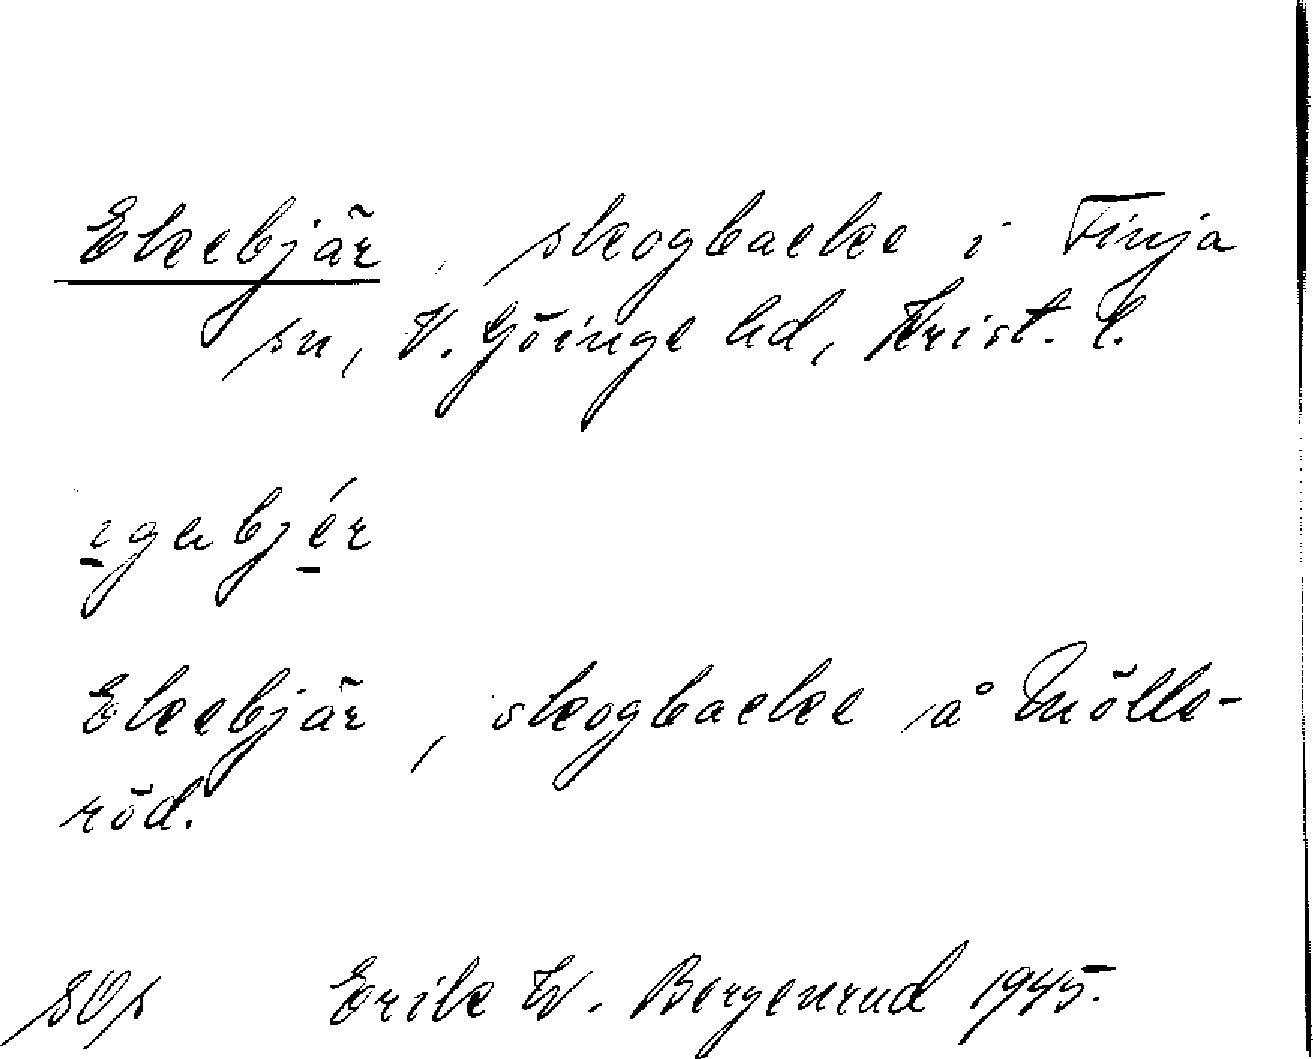 Ekebjär, skogbacke i Finja
sn, V. Göinge hd, Krist. l.
egabjér
Ekebjär, skogbacke å Mölle-
röd.
Erik W. Bergenrud 1945.